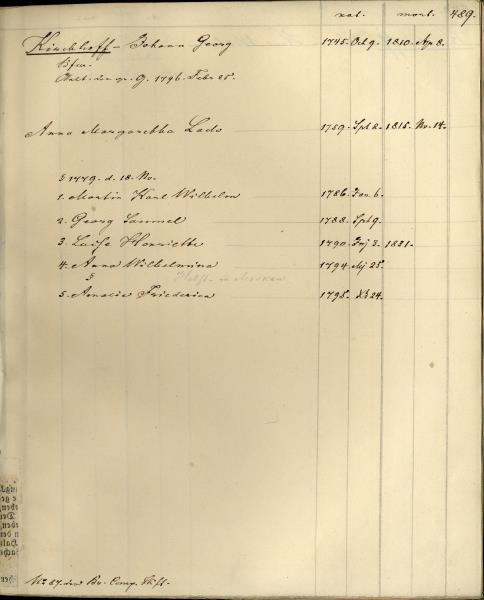 nat. mort. 489.
Kirchhoff - Johann Georg 1745. Oct 9. 1810. Ap 8.
Bfw.
Aelt. der gr. G. 1796. Febr 25.
Anna Margaretha Lado 1759. Spt 2. 1815. Nv. 14.
§ 1779. d. 18. Nv.
1. Martin Karl Wilhelm 1786. Jan. 6.
2. Georg Samuel 1788. Spt 9.
3. Luise Henriette 1790. Jnj 3. 1831.
4. Anna Wilhelmina 1794. Mj 25.
§ in Moskau
5. Amalie Friederica 1795. Xb 24.
No 87. der Br. Comp. Stift.